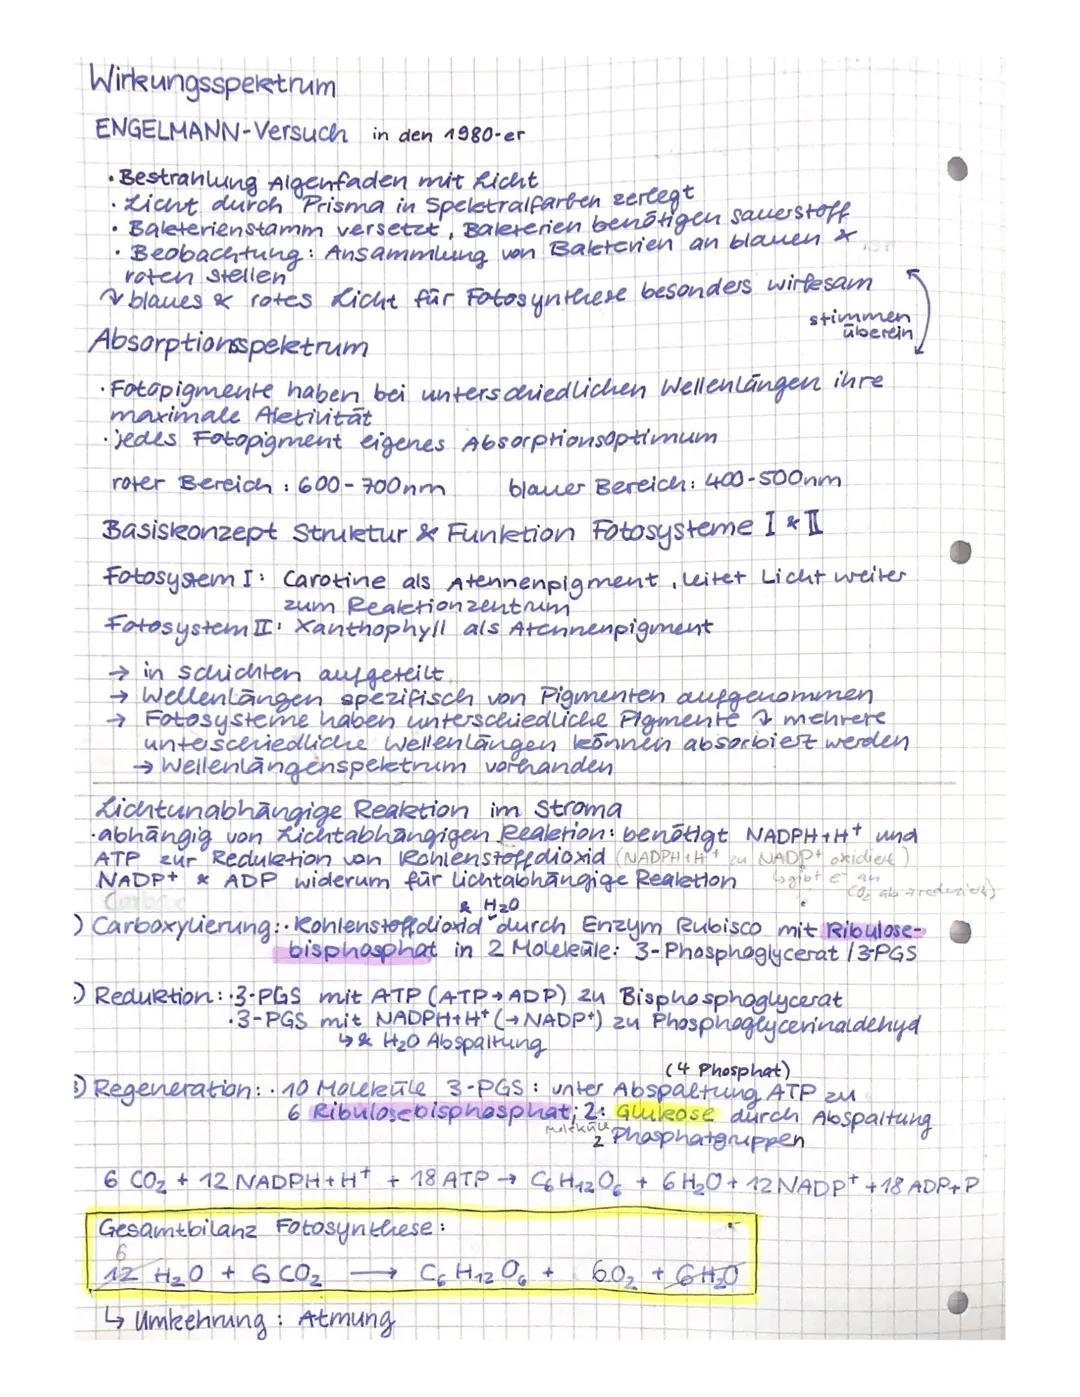 Wirkungsspektrum
ENGELMANN-Versuch in den 1980-er
· Bestrahlung Algenfaden mit Licht
· Licht durch Prisma in Spektralfarben zerlegt
· Bakterienstamm versetzt, Bakterien benötigen sauerstoff
· Beobachtung: Ansammlung von Bakterien an blauen &
roten stellen
↳ blaues & rotes Licht für Fotosynthese besonders wirksam
stimmen
überein
Absorptionsspektrum
· Fotopigmente haben bei unterschiedlichen Wellenlängen ihre
maximale Aktivität
· jedes Fotopigment eigenes Absorptionsoptimum
roter Bereich: 600-700nm blauer Bereich: 400-500nm
Basiskonzept Struktur & Funktion Fotosysteme I & II
Fotosystem I: Carotine als Atennenpigment, leitet Licht weiter
zum Reaktionzentrum
Fotosystem II: Xanthophyll als Atennenpigment
→ in schichten aufgeteilt
→ Wellenlängen spezifisch von Pigmenten aufgenommen
→ Fotosysteme haben unterschiedliche Pigmente ↳ mehrere
unterschiedliche Wellenlängen können absorbiert werden
→ Wellenlängenspektrum vorhanden
Lichtunabhängige Reaktion im Stroma
· abhängig von Lichtabhängigen Reaktion: benötigt NADPH+H⁺ und
ATP zur Reduktion von Kohlenstoffdioxid (NADPH+H⁺ zu NADP⁺ oxidiert)
NADP⁺ & ADP widerum für lichtabhängige Reaktion ↳ gibt e⁻ an
CO₂ ab → reduziert)
& H₂O
) Carboxylierung: · Kohlenstoffdioxid durch Enzym Rubisco mit Ribulose-
bisphosphat in 2 Moleküle: 3-Phosphoglycerat /3-PGS
.) Reduktion: · 3-PGS mit ATP (ATP→ADP) zu Bisphosphoglycerat
· 3-PGS mit NADPH+H⁺ (→NADP⁺) zu Phosphoglycerinaldehyd
↳ & H₂O Abspaltung
(4 Phosphat)
3) Regeneration: · 10 Moleküle 3-PGS: unter Abspaltung ATP zu
6 Ribulosebisphosphat; 2: Glukose durch Abspaltung
Moleküle 2 Phosphatgruppen
6 CO₂ + 12 NADPH+H⁺ + 18 ATP → C₆H₁₂O₆ + 6H₂O + 12 NADP⁺ + 18 ADP+P
Gesamtbilanz Fotosynthese:
6
12 H₂O + 6 CO₂ → C₆H₁₂O₆ + 6O₂ + 6H₂O
↳ Umkehrung: Atmung